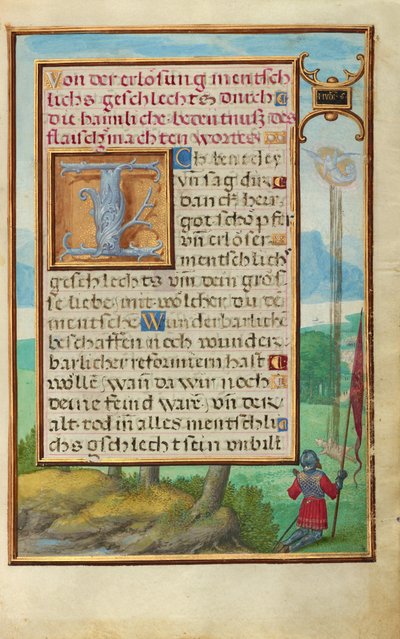 Von der erlösung mentsch
lichs geschlechts durch
die haimliche bedeutnuß des
flaisch machten worts
Ich bekenn dey
vn̄ sag dir
danck herr
got schöpfer
vn̄ erlöser
mentschlichs
geschlechts vm dein gros
se liebe mit wölcher du de
mentsche wunderbarliche
beschaffen noch wunder
barlicher reformiern hast
wölle wañ da wir noch
deine feind warē vn̄ der
alt tod in alles mentschli
chs gschlecht sein unbilt